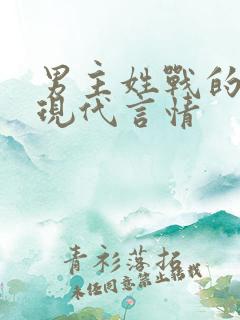 男主姓戰的
現代言情
青衫落拓
未经同意禁止转载